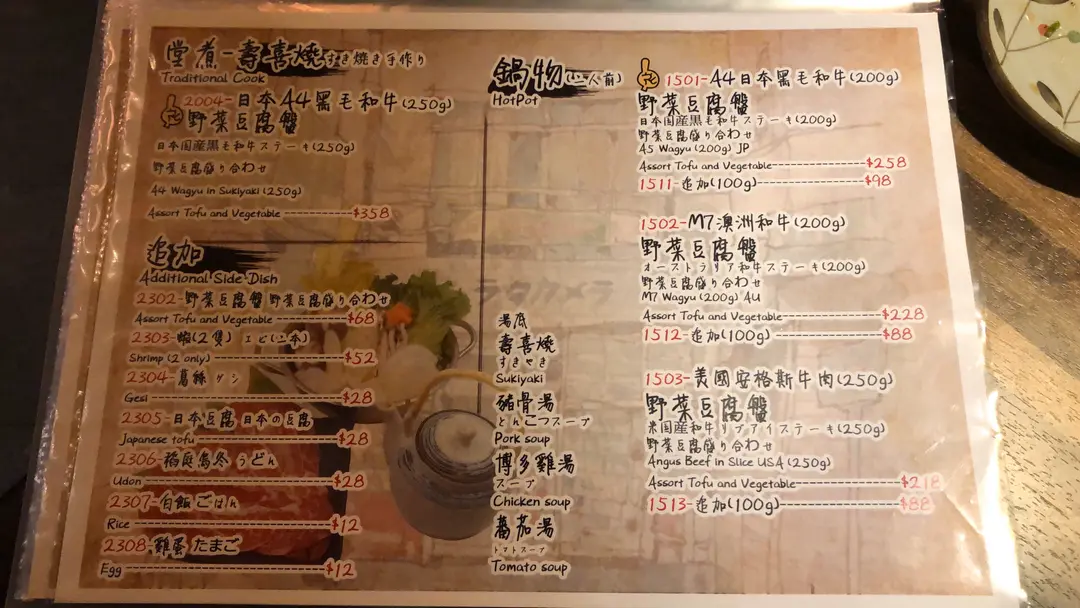 堂煮-壽喜燒すき焼き手作り
Traditional Cook
2004-日本A4黑毛和牛(250g)
野菜豆腐盤
日本国産黒毛和牛ステーキ(250g)
野菜豆腐盛り合わせ
A4 Wagyu in Sukiyaki (250g)
Assort Tofu and Vegetable ---------------$358
追加
Additional Side Dish
2302-野菜豆腐盤 野菜豆腐盛り合わせ
Assort Tofu and Vegetable ---------------$68
2303-蝦(2隻) エビ(二本)
Shrimp (2 only) ---------------$52
2304-葛絲 ゲシ
Gesi ---------------$28
2305-日本豆腐 日本の豆腐
Japanese tofu ---------------$28
2306-稻庭烏冬 うどん
Udon ---------------$28
2307-白飯 ごはん
Rice ---------------$12
2308-雞蛋 たまご
Egg ---------------$12
鍋物(二人前)
HotPot
湯底
壽喜燒
すきやき
Sukiyaki
豬骨湯
とんこつスープ
Pork soup
博多雞湯
スープ
Chicken soup
蕃茄湯
トマトスープ
Tomato soup
1501-A4日本黑毛和牛(200g)
野菜豆腐盤
日本国産黒毛和牛ステーキ(200g)
野菜豆腐盛り合わせ
A5 Wagyu (200g) JP
Assort Tofu and Vegetable---------------$258
1511-追加(100g)---------------$98
1502-M7澳洲和牛(200g)
野菜豆腐盤
オーストラリア和牛ステーキ(200g)
野菜豆腐盛り合わせ
M7 Wagyu (200g) AU
Assort Tofu and Vegetable---------------$228
1512-追加(100g)---------------$88
1503-美國安格斯牛肉(250g)
野菜豆腐盤
米国産和牛リブアイステーキ(250g)
野菜豆腐盛り合わせ
Angus Beef in Slice USA (250g)
Assort Tofu and Vegetable---------------$218
1513-追加(100g)---------------$88